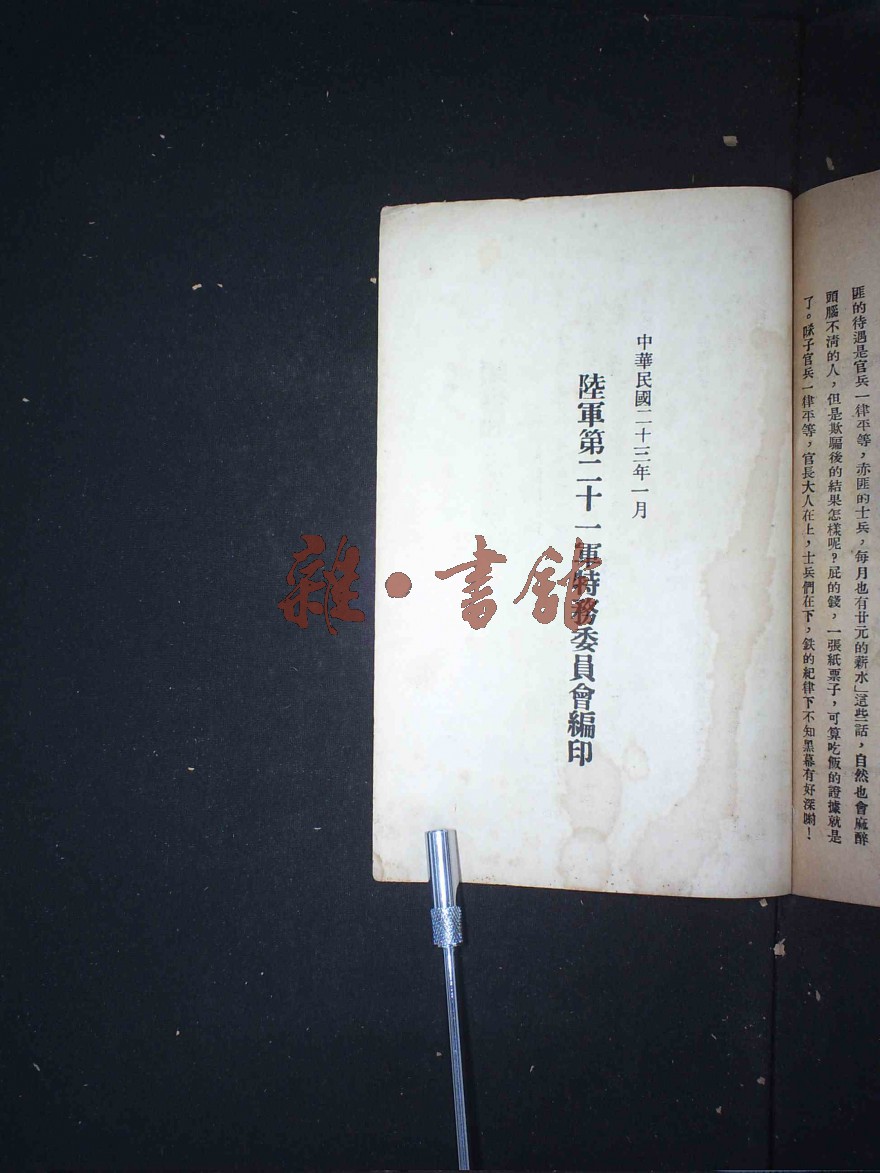 匪的待遇是官兵一律平等，赤匪的士兵，每月也有廿元的薪水」這些話，自然也會麻醉
頭腦不清的人，但是欺騙後的結果怎樣呢？屁的錢，一張紙票子，可算吃飯的證據就是
了。隊子官兵一律平等，官長大人在上，士兵們在下，鉄的紀律下不知黑幕有好深喲！
中華民國二十三年一月
陸軍第二十一軍特務委員會編印
雜·書館